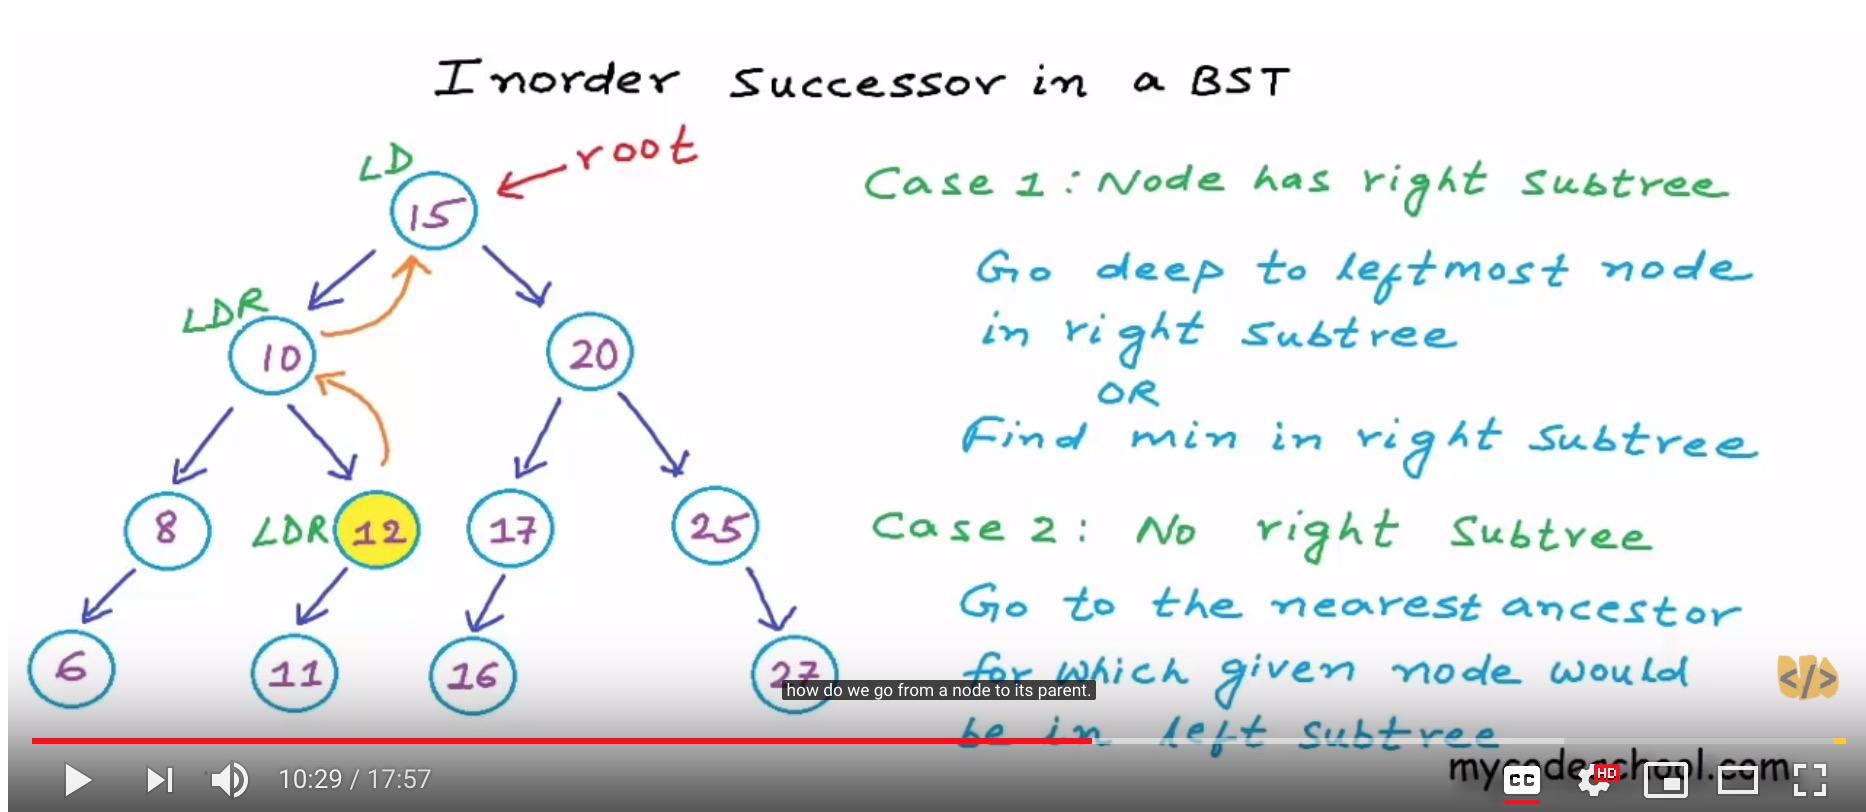 Inorder Successor in a BST
LD
root
15
Case 1: Node has right subtree
Go deep to leftmost node
in right subtree
OR
Find min in right subtree
LDR
10
20
8
LDR 12
17
25
Case 2: No right Subtree
Go to the nearest ancestor
for which given node would
be in left subtree
6
11
16
27
how do we go from a node to its parent.
</>
mycodeschool.com
10:29 / 17:57
CC
HD